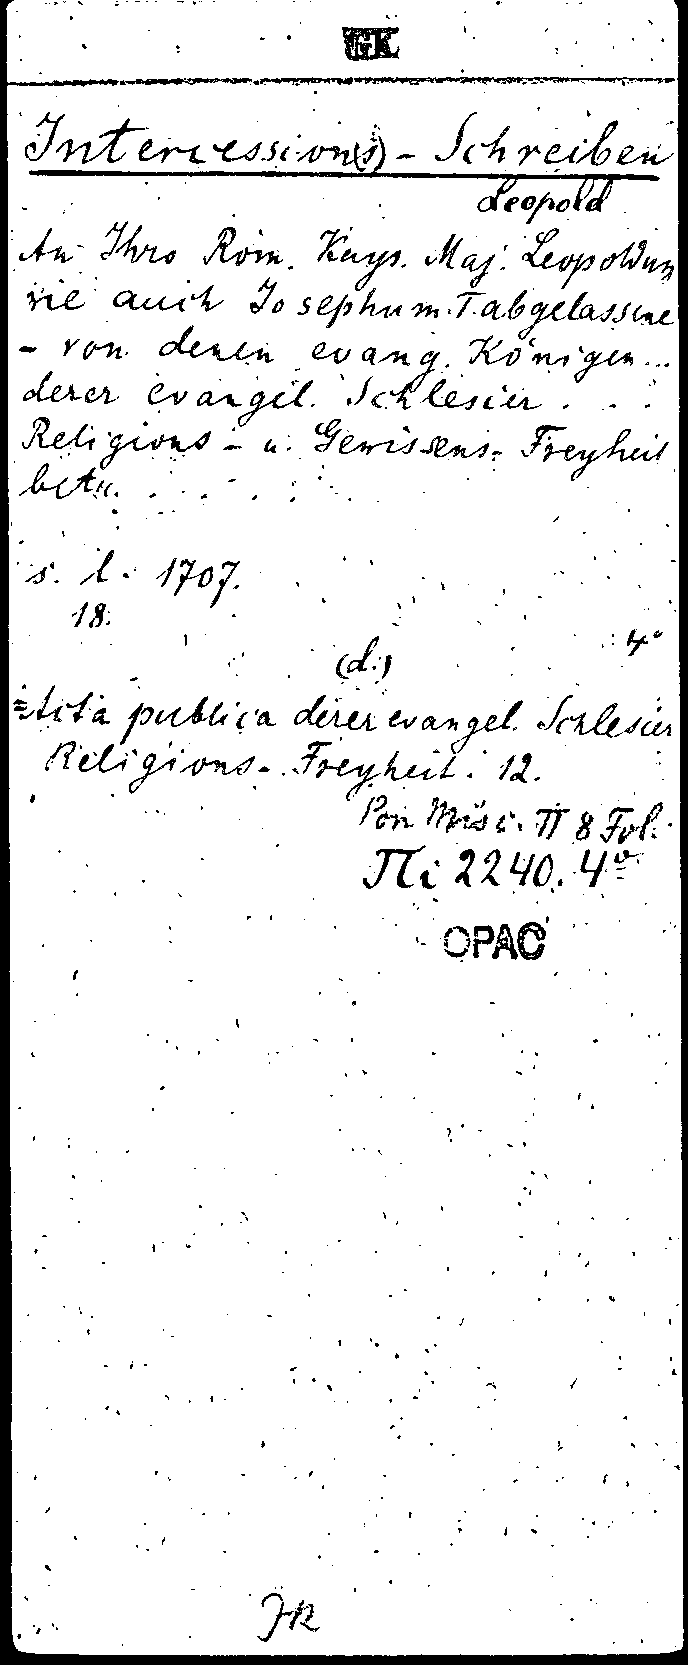 GK
Intercession(s)-Schreiben
Leopold
An Ihro Röm. Kays. Maj. Leopoldum
wie auch Josephum I. abgelassene
- von denen evang. Königen...
derer evangel. Schlesier . . .
Religions- u. Gewissens-Freyheit
betr. . . . . . .
s. l. 1707.
18.
4°
(d.)
=Acta publica derer evangel. Schlesier
Religions-Freyheit. 12.
Pon Misc. 8 Fol.
2240. 4°
OPAC